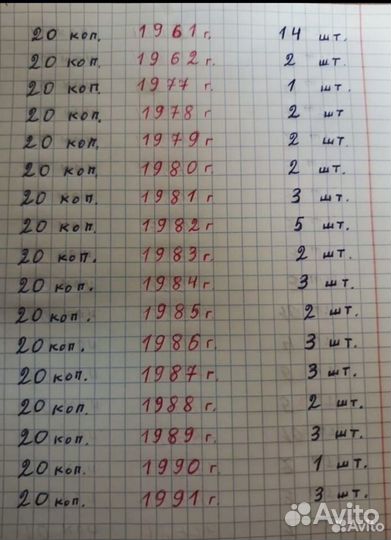 20 коп. 1961 г. 14 шт.
20 коп. 1962 г. 2 шт.
20 коп. 1977 г. 1 шт.
20 коп. 1978 г 2 шт
20 коп. 1979 г 2 шт.
20 коп. 1980 г. 2 шт.
20 коп. 1981 г 3 шт.
20 коп. 1982 г 5 шт.
20 коп. 1983 г. 2 шт.
20 коп. 1984 г. 3 шт.
20 коп. 1985 г. 2 шт.
20 коп. 1986 г. 3 шт.
20 коп. 1987 г. 3 шт.
20 коп. 1988 г. 2 шт.
20 коп. 1989 г. 3 шт.
20 коп. 1990 г. 1 шт.
20 коп. 1991 г. 3 шт.
Avito